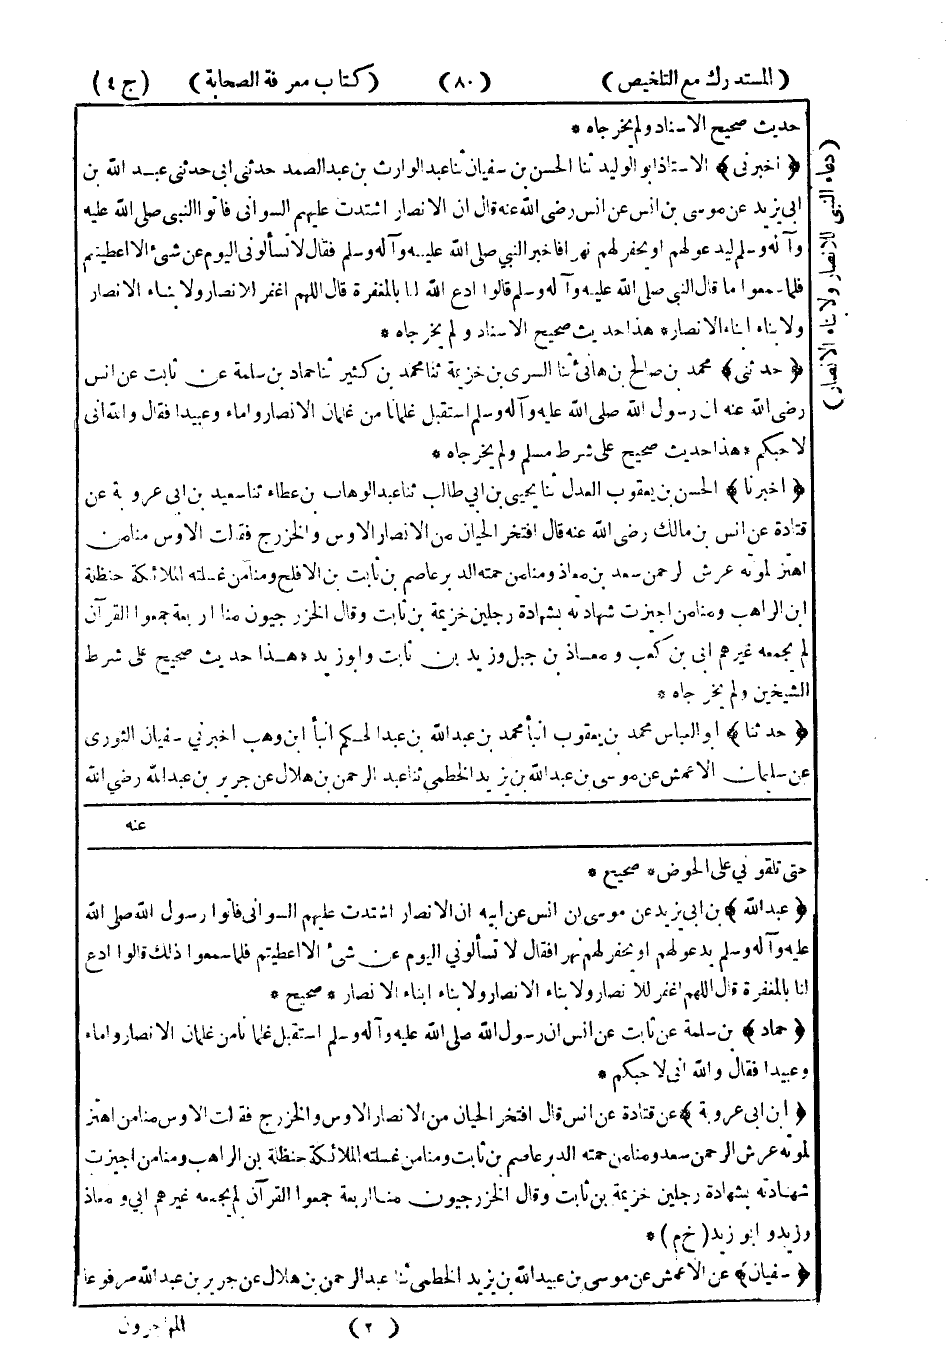 (المستدرك مع التلخيص) (٨٠) (كتاب معرفة الصحابة) (ج ٤)
حديث صحيح الاسناد ولم يخرجاه *
﴿ اخبرنى ﴾ الاستاذ ابو الوليد ثنا الحسن بن سفيان ثنا عبد الوارث بن عبد الصمد حدثنى ابى حدثنى عبد الله بن
ابى يزيد عن موسى بن انس عن انس رضى الله عنه قال ان الانصار اشتدت عليهم السوانى فاتوا النبى صلى الله عليه
وآله وسلم ليدعو لهم او يحفر لهم نهرا فاخبر النبي صلى الله عليه وآله وسلم فقال لا تسألونى اليوم عن شئ الا اعطيتم
فلما سمعوا ما قال النبي صلى الله عليه وآله وسلم قالوا ادع الله لنا بالمغفرة قال اللهم اغفر للانصار ولابناء الانصار
ولابناء ابناء الانصار * هذا حديث صحيح الاسناد ولم يخرجاه *
﴿ حدثنى ﴾ محمد بن صالح بن هانئ ثنا السرى بن خزيمة ثنا محمد بن كثير ثنا حماد بن سلمة عن ثابت عن انس
رضى الله عنه ان رسول الله صلى الله عليه وآله وسلم استقبل غلمانا من غلمان الانصار واماء وعبيدا فقال والله انى
لاحبكم * هذا حديث صحيح على شرط مسلم ولم يخرجاه *
﴿ اخبرنا ﴾ الحسن بن يعقوب العدل ثنا يحيى بن ابي طالب ثنا عبد الوهاب بن عطاء ثنا سعيد بن ابى عروبة عن
قتادة عن انس بن مالك رضى الله عنه قال افتخر الحيان من الانصار الاوس والخزرج فقالت الاوس منا من
اهتز لموته عرش الرحمن سعد بن معاذ ومنا من حمته الدبر عاصم بن ثابت بن الافلح ومنا من غسلته الملائكة حنظلة
ابن الراهب ومنا من اجيزت شهادته بشهادة رجلين خزيمة بن ثابت وقال الخزرجيون منا اربعة جمعوا القرآن
لم يجمعه غيرهم ابى بن كعب و معاذ بن جبل وزيد بن ثابت وابو زيد * هذا حديث صحيح على شرط
الشيخين ولم يخرجاه *
﴿ حدثنا ﴾ ابو العباس محمد بن يعقوب انبأ محمد بن عبد الله بن عبد الحكم انبأ ابن وهب اخبرني سفيان الثورى
عن سليمان الاعمش عن موسى بن عبد الله بن يزيد الخطمى ثنا عبد الرحمن بن هلال عن جرير بن عبد الله رضى الله
عنه
(دعاء النبى للانصار ولابناء الانصار)
حتى تلقوني على الحوض * صحيح *
﴿ عبد الله ﴾ بن ابى يزيد عن موسى بن انس عن ابيه ان الانصار اشتدت عليهم السوانى فاتوا رسول الله صلى الله
عليه وآله وسلم يدعو لهم او يحفر لهم نهرا فقال لا تسألوني اليوم عن شئ الا اعطيتم فلما سمعوا ذلك قالوا ادع
لنا بالمغفرة قال اللهم اغفر للانصار ولابناء الانصار ولابناء ابناء الانصار * صحيح *
﴿ حماد ﴾ بن سلمة عن ثابت عن انس ان رسول الله صلى الله عليه وآله وسلم استقبل غلمانا من غلمان الانصار واماء
وعبيدا فقال والله انى لاحبكم *
﴿ ابن ابى عروبة ﴾ عن قتادة عن انس قال افتخر الحيان من الانصار الاوس والخزرج فقالت الاوس منا من اهتز
لموته عرش الرحمن سعد ومنا من حمته الدبر عاصم بن ثابت ومنا من غسلته الملائكة حنظلة بن الراهب ومنا من اجيزت
شهادته بشهادة رجلين خزيمة بن ثابت وقال الخزرجيون منا اربعة جمعوا القرآن لم يجمعه غيرهم ابي و معاذ
وزيد و ابو زيد (خ م) *
﴿ سفيان ﴾ عن الاعمش عن موسى بن عبيد الله بن يزيد الخطمى ثنا عبد الرحمن بن هلال عن جرير بن عبد الله مرفوعا
(٢) المهاجرون